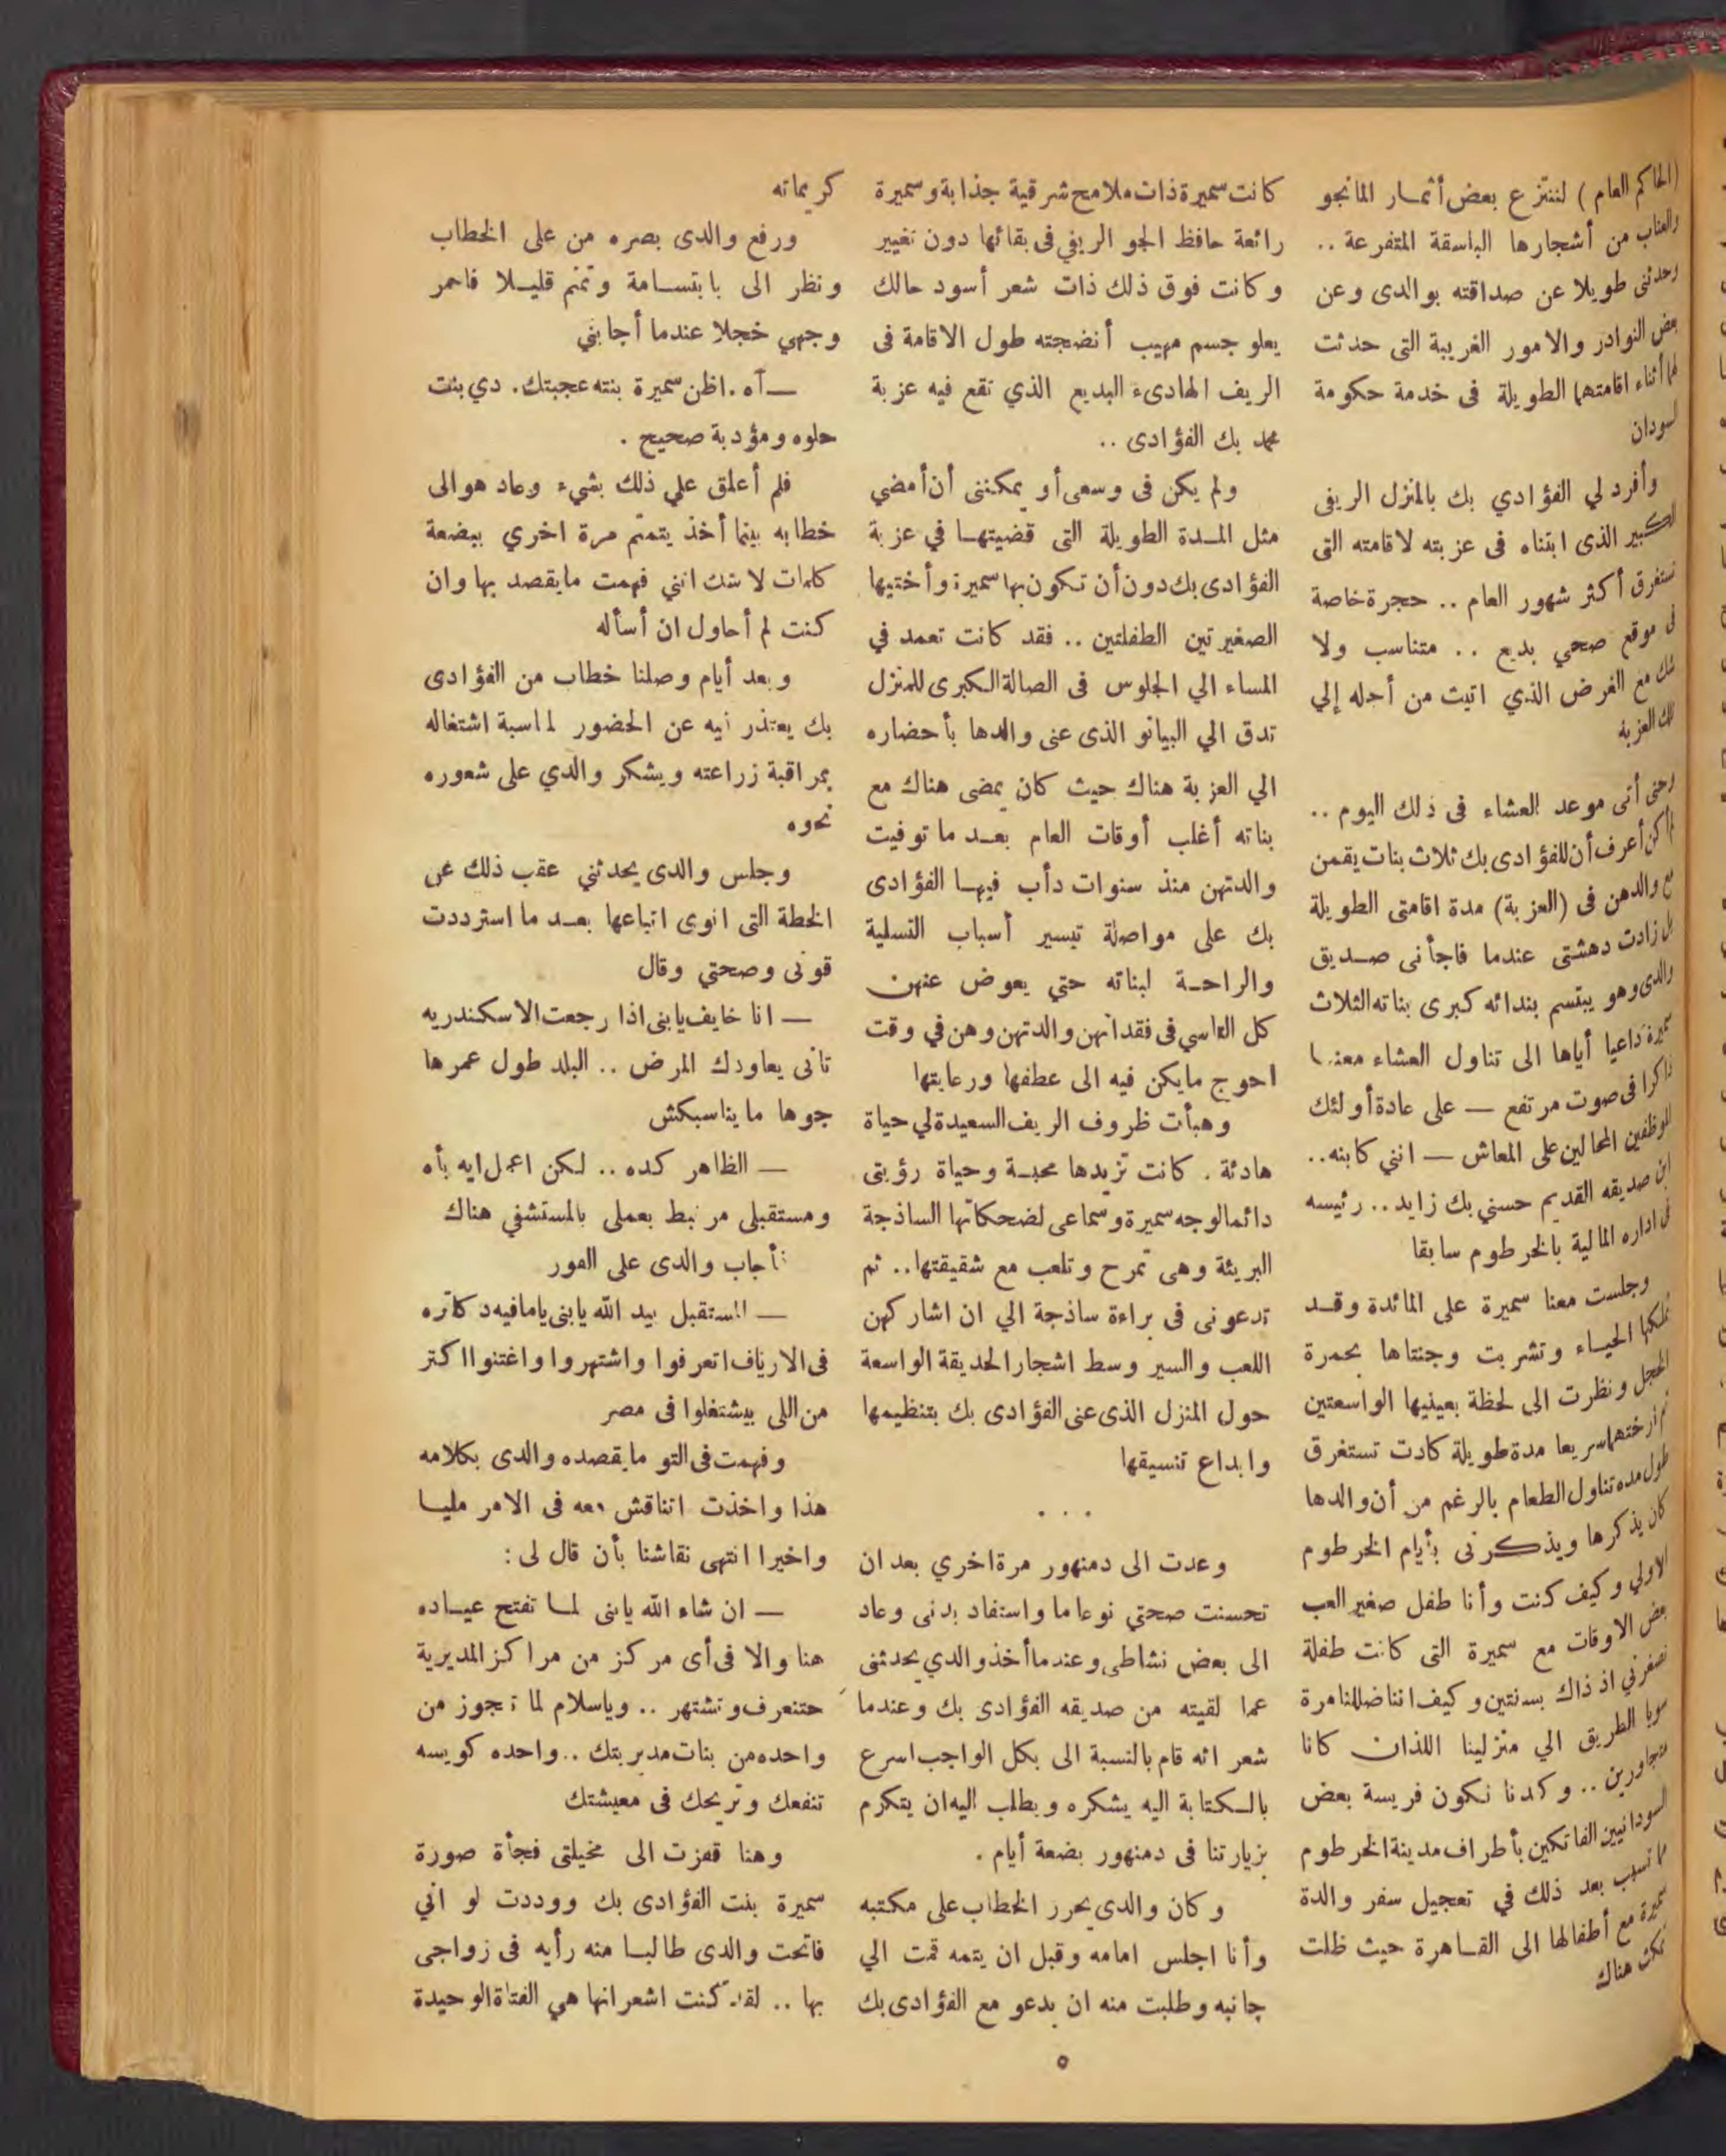 (الحاكم العام ) لننتزع بعض أثمـار المانجو
والعناب من أشجارها الباسقة المتفرعة ..
وحدثنى طويلا عن صداقته بوالدى وعن
بعض النوادر والامور الغريبة التى حدثت
لهما أثناء اقامتهما الطويلة فى خدمة حكومة
السودان
وأفرد لي الفؤادي بك بالمنزل الريفى
الكبير الذى ابتناه فى عزبته لاقامته التى
تستغرق أكثر شهور العام .. حجرة خاصة
فى موقع صحي بديع .. متناسب ولا
شك مع الغرض الذي اتيت من أجله إلي
تلك العزبة
وحتى أتى موعد العشاء فى ذلك اليوم ..
لم أكن أعرف أن للفؤادى بك ثلاث بنات يقمن
مع والدهن فى (العزبة) مدة اقامتى الطويلة
بل زادت دهشتى عندما فاجأنى صـديق
والدى وهو يبتسم بندائه كبرى بناته الثلاث
سميرة داعيا أياها الى تناول العشاء معنـا
ذاكرا فى صوت مرتفع — على عادة أولئك
الموظفين المحالين على المعاش — انني كابنه..
ابن صديقه القديم حسني بك زايد .. رئيسه
فى اداره المالية بالخرطوم سابقا
وجلست معنا سميرة على المائدة وقـد
تملكها الحيـاء وتشربت وجنتاها بحمرة
الخجل ونظرت الى لحظة بعينيها الواسعتين
ثم أرختهما سريعا مدة طويلة كادت تستغرق
طول مده تناول الطعام بالرغم من أن والدها
كان يذكرها ويذكرنى بأيام الخرطوم
الاولي وكيف كنت وأنا طفل صغير العب
بعض الاوقات مع سميرة التى كانت طفلة
تصغرني اذ ذاك بسنتين وكيف اننا ضللنا مرة
سويا الطريق الي منزلينا اللذان كانا
متجاورين .. وكدنا نكون فريسة بعض
السودانيين الفاتكين بأطراف مدينة الخرطوم
مما تسبب بعد ذلك في تعجيل سفر والدة
سميرة مع أطفالها الى القـاهرة حيث ظلت
تمكث هناك
كانت سميرة ذات ملامح شرقية جذابة وسميرة
رائعة حافظ الجو الريفي فى بقائها دون تغيير
وكانت فوق ذلك ذات شعر أسود حالك
يعلو جسم مهيب أنضجته طول الاقامة فى
الريف الهادىء البديع الذي تقع فيه عزبة
محمد بك الفؤادى ..
ولم يكن فى وسعى أو يمكننى أن أمضي
مثل المـدة الطويلة التى قضيتهـا في عزبة
الفؤادى بك دون أن تكون بها سميرة وأختيها
الصغيرتين الطفلتين .. فقد كانت تعمد في
المساء الي الجلوس فى الصالة الكبرى للمنزل
تدق الي البيانو الذى عنى والدها بأحضاره
الي العزبة هناك حيث كان يمضى هناك مع
بناته أغلب أوقات العام بعـد ما توفيت
والدتهن منذ سنوات دأب فيهـا الفؤادى
بك على مواصلة تيسير أسباب التسلية
والراحـة لبناته حتي يعوض عنهن
كل التاسي فى فقدانهن والدتهن وهن في وقت
احوج مايكن فيه الى عطفها ورعايتها
وهيأت ظروف الريف السعيدة لي حياة
هادئة . كانت تزيدها محبـة وحياة رؤيتى
دائما لوجه سميرة وسماعى لضحكاتها الساذجة
البريئة وهى تمرح وتلعب مع شقيقتها .. ثم
تدعونى فى براءة ساذجة الي ان اشاركهن
اللعب والسير وسط اشجار الحديقة الواسعة
حول المنزل الذى عنى الفؤادى بك بتنظيمها
وابداع تنسيقها
. . .
وعدت الى دمنهور مرة اخري بعد ان
تحسنت صحتي نوعا ما واستفاد بدنى وعاد
الى بعض نشاطى وعندما أخذ والدي يحدثنى
عما لقيته من صديقه الفؤادى بك وعندما
شعر انه قام بالنسبة الى بكل الواجب اسرع
بالـكتابة اليه يشكره ويطلب اليه ان يتكرم
بزيارتنا فى دمنهور بضعة أيام .
وكان والدى يحرر الخطاب على مكتبه
وأنا اجلس امامه وقبل ان يتمه قمت الي
جانبه وطلبت منه ان يدعو مع الفؤادى بك
كريماته
ورفع والدى بصره من على الخطاب
ونظر الى بابتسـامة وتمتم قليـلا فاحمر
وجهي خجلا عندما أجابني
— آه . اظن سميرة بنته عجبتك . دي بنت
حلوه ومؤدبة صحيح .
فلم أعلق علي ذلك بشيء وعاد هو الى
خطابه بينما أخذ يتمتم مرة اخري ببضعة
كلمات لا شك انني فهمت مايقصد بها وان
كنت لم أحاول ان أسأله
وبعد أيام وصلنا خطاب من الفؤادى
بك يعتذر فيه عن الحضور لمناسبة اشتغاله
بمراقبة زراعته ويشكر والدي على شعوره
نحوه
وجلس والدى يحدثني عقب ذلك عن
الخطة التى انوى اتباعها بعـد ما استرددت
قوتى وصحتي وقال
— انا خايف يابنى اذا رجعت الاسكندريه
تانى يعاودك المرض .. البلد طول عمرها
جوها ما يناسبكش
— الظاهر كده .. لكن اعمل ايه بأه
ومستقبلى مرتبط بعملى بالمستشفي هناك
فأجاب والدى على الفور
— المستقبل بيد الله يابنى ياما فيه دكاتره
فى الارياف اتعرفوا واشتهروا واغتنوا اكتر
من اللى بيشتغلوا فى مصر
وفهمت فى التو مايقصده والدى بكلامه
هذا واخذت اتناقش معه فى الامر مليـا
واخيرا انتهى نقاشنا بأن قال لى :
— ان شاء الله يابنى لمـا تفتح عيـاده
هنا والا فى أى مركز من مراكز المديرية
حتتعرف وتشتهر .. وياسلام لما تجوز من
واحده من بنات مديريتك .. واحده كويسه
تنفعك وتريحك فى معيشتك
وهنا قفزت الى مخيلتى فجأة صورة
سميرة بنت الفؤادى بك ووددت لو اني
فاتحت والدى طالبـا منه رأيه فى زواجى
بها .. لقد كنت اشعر انها هي الفتاة الوحيدة
٥